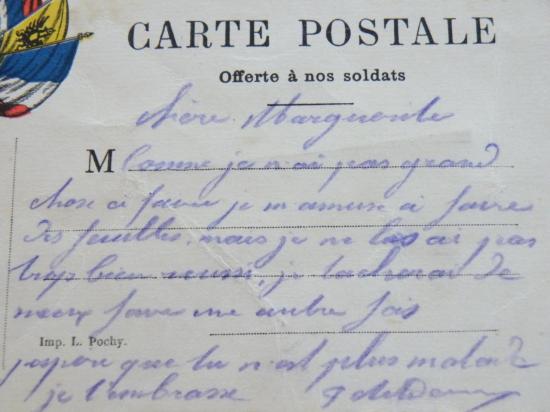 CARTE POSTALE
Offerte à nos soldats
Chère Marguerite
M
Comme je n'ai pas grand
chose a faire je m'amuse a faire
des feuilles, mais je ne les ai pas
trop bien reussi, je tacherai de
mieux faire une autre fois
Imp. L. Pochy.
j'espère que tu n'est plus malade
je t'embrasse